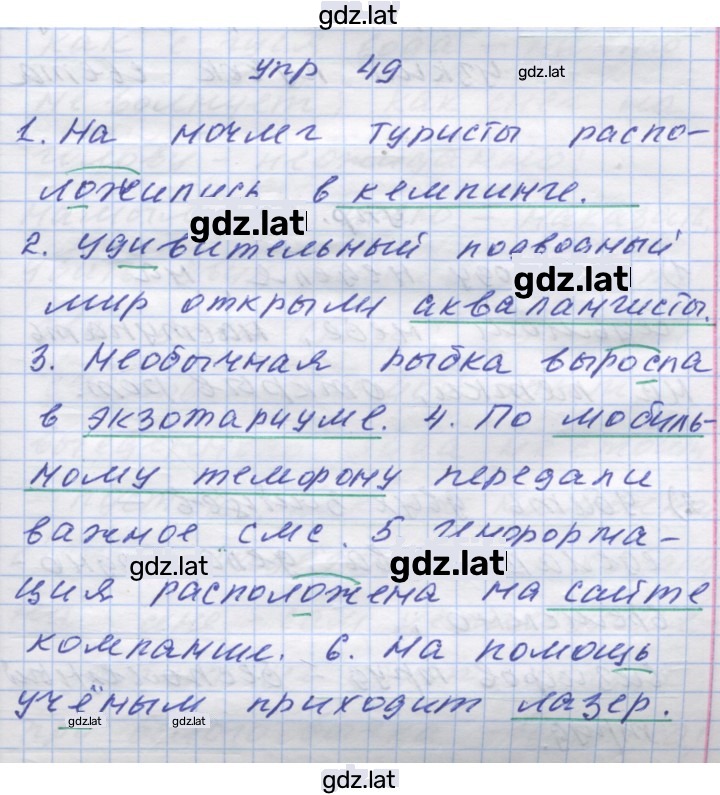 gdz.lat
упр 49 gdz.lat
1. На ночлег туристы распо-
ложились в кемпинге.
gdz.lat
2. Удивительный подводный
gdz.lat
мир открыли аквалангисты.
3. Необычная рыбка выросла
в экзотариуме. 4. По мобиль-
ному телефону передали
важное смс. 5. Информа-
gdz.lat gdz.lat
ция расположена на сайте
компании. 6. На помощь
учёным приходит лазер.
gdz.lat gdz.lat
gdz.lat